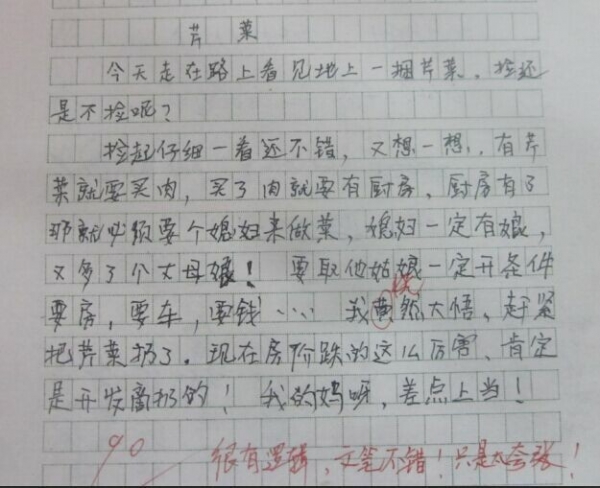 芹菜
今天走在路上看见地上一捆芹菜，捡还
是不捡呢？
捡起仔细一看还不错，又想一想，有芹
菜就要买肉，买了肉就要有厨房，厨房有了
那就必须要个媳妇来做菜，媳妇一定有娘，
又多了个丈母娘！要取他姑娘一定开条件
要房，要车，要钱……我黄然大悟、赶紧
恍
把芹菜扔了。现在房价跌的这么厉害、肯定
是开发商扔的！我的妈呀，差点上当！
90
很有逻辑，文笔不错！只是太夸张！